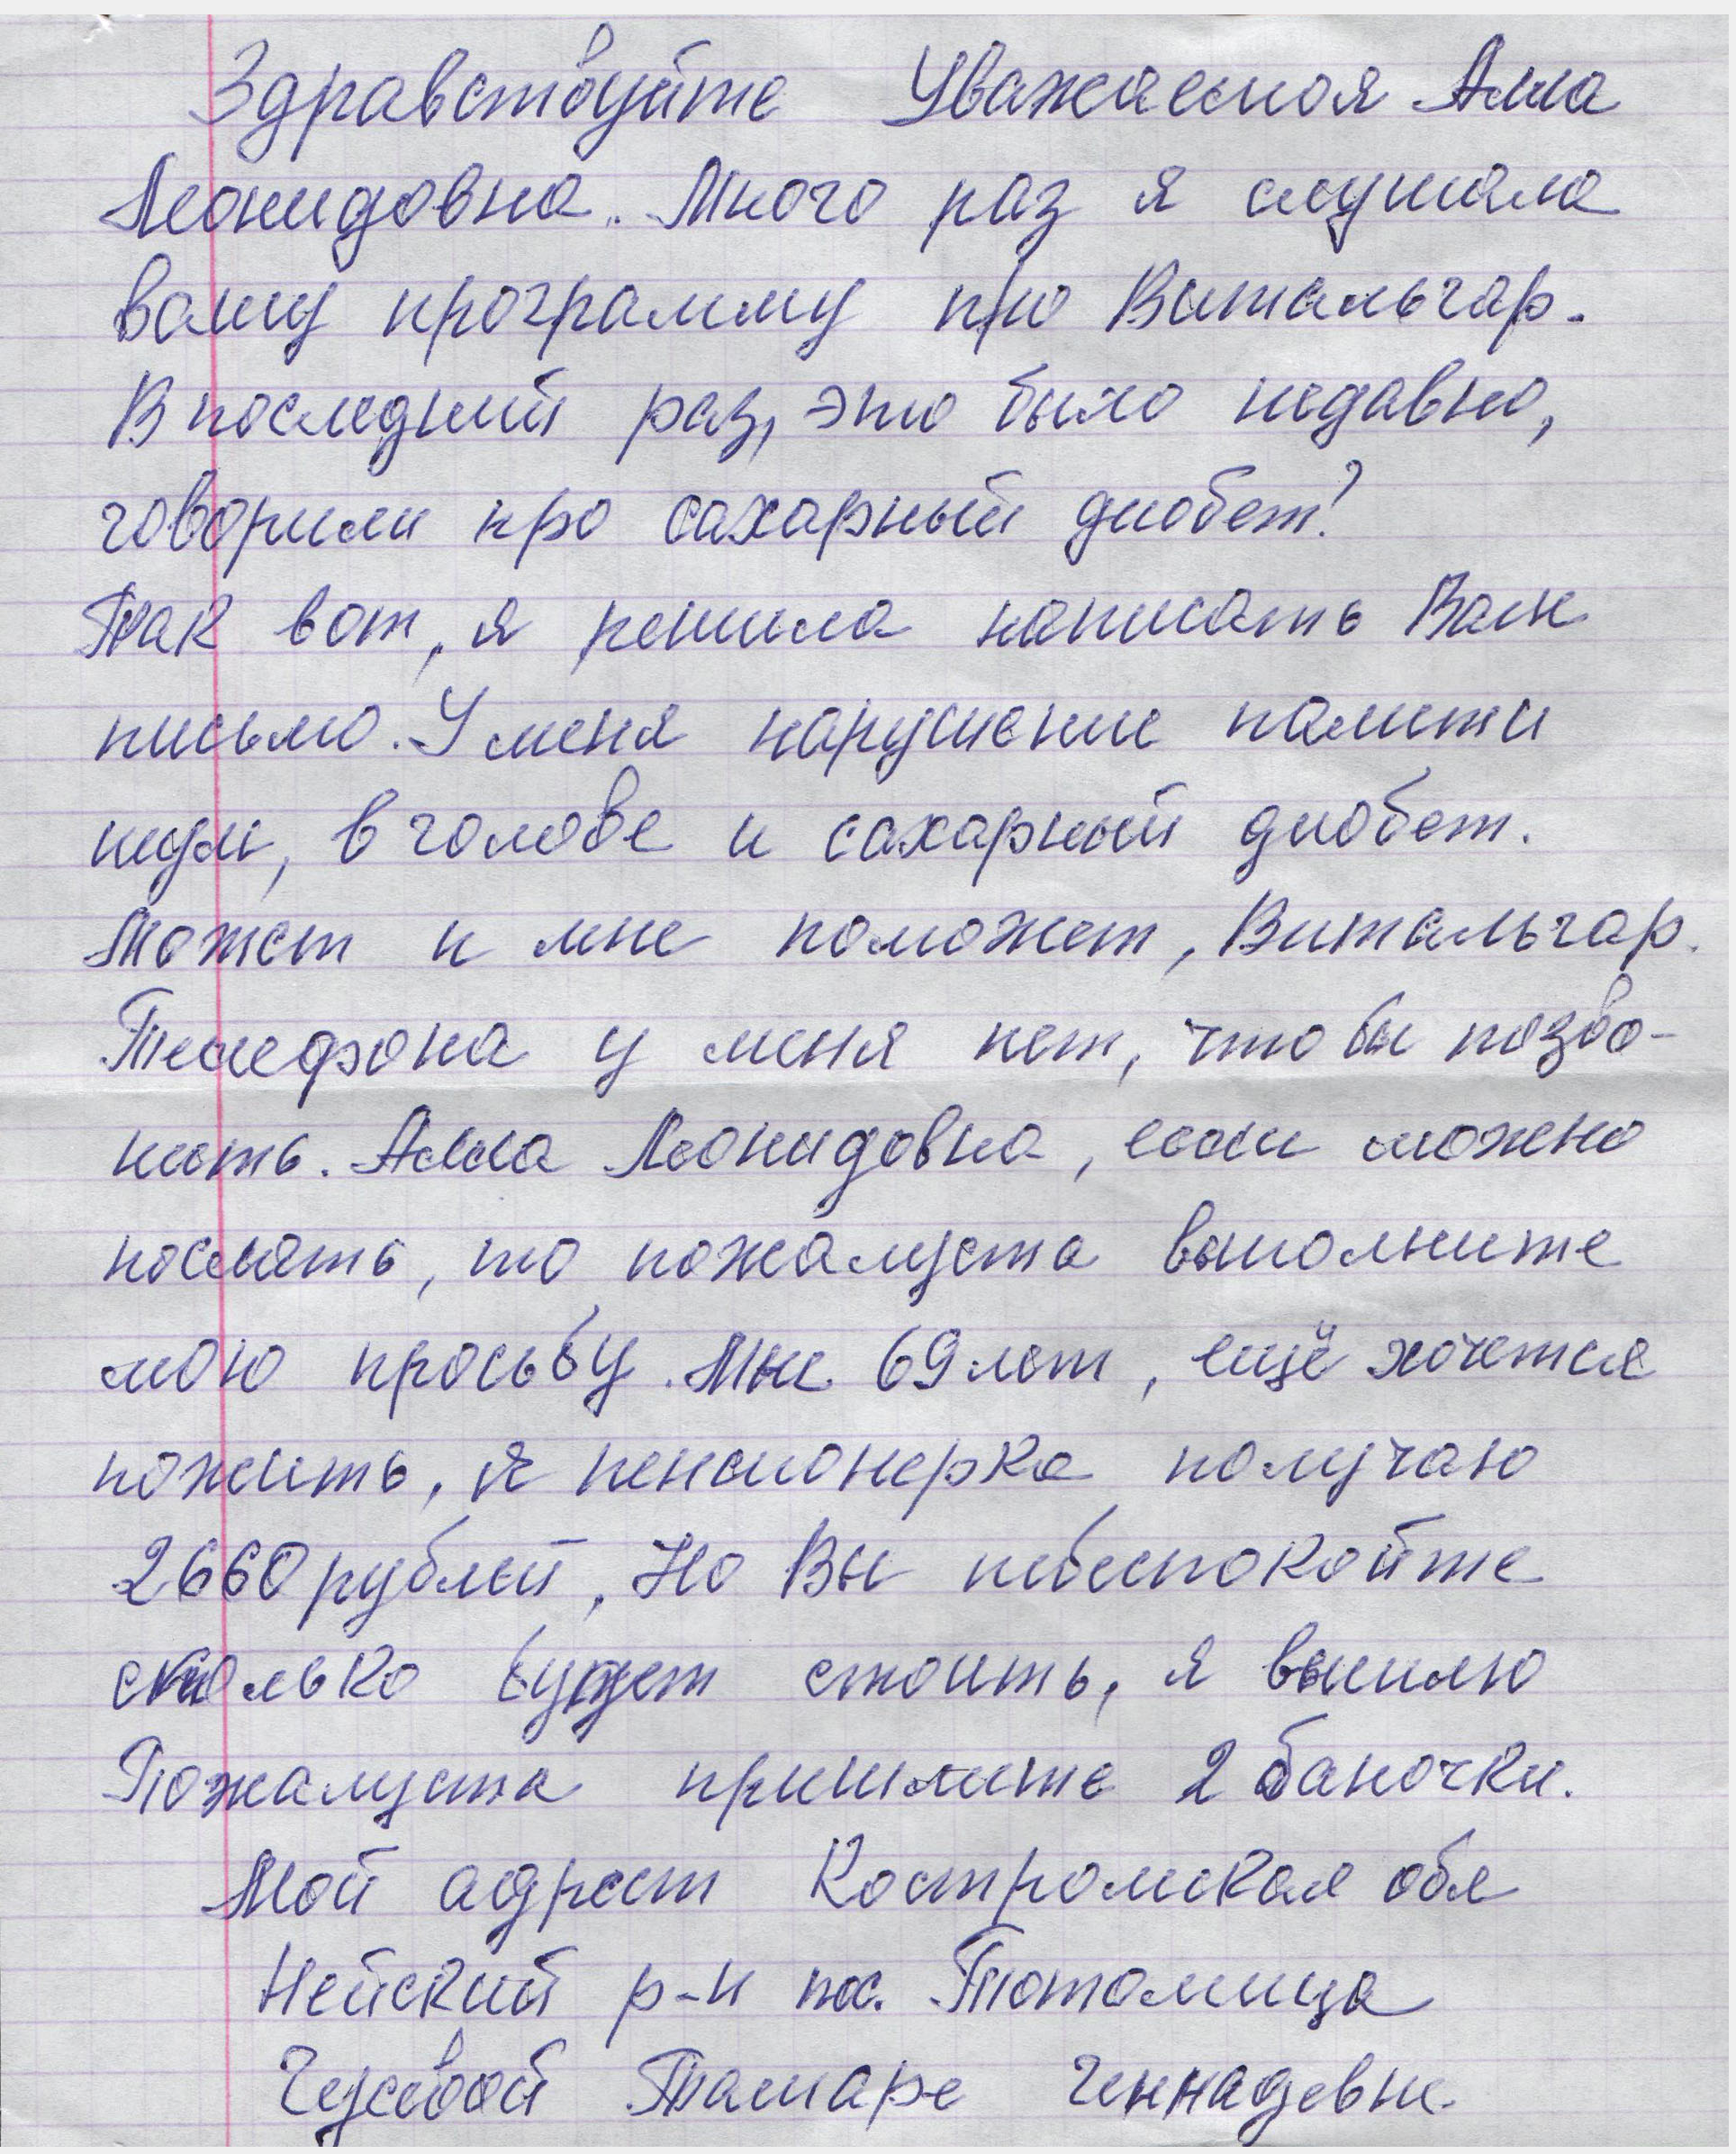 Здравствуйте Уважаемая Алла
Леонидовна. Много раз я слушала
вашу программу про Витальгар.
В последний раз, это было недавно,
говорили про сахарный диобет!
Так вот, я решила написать Вам
письмо. У меня нарушение памяти
шум, в голове и сахарный диобет.
Может и мне поможет, Витальгар.
Телефона у меня нет, что бы позво-
нить. Алла Леонидовна, если можно
послать, то пожалуста выполните
мою просьбу. Мне 69 лет, ещё хочется
пожить, я пенсионерка получаю
2660 рублей, Но Вы небеспокойте
сколько будет стоить, я вышлю
Пожалуста пришлите 2 баночки.
Мой адрест Костромская обл
Нейский р-н пос. Тотомица
Гусевой Тамаре Геннадевне